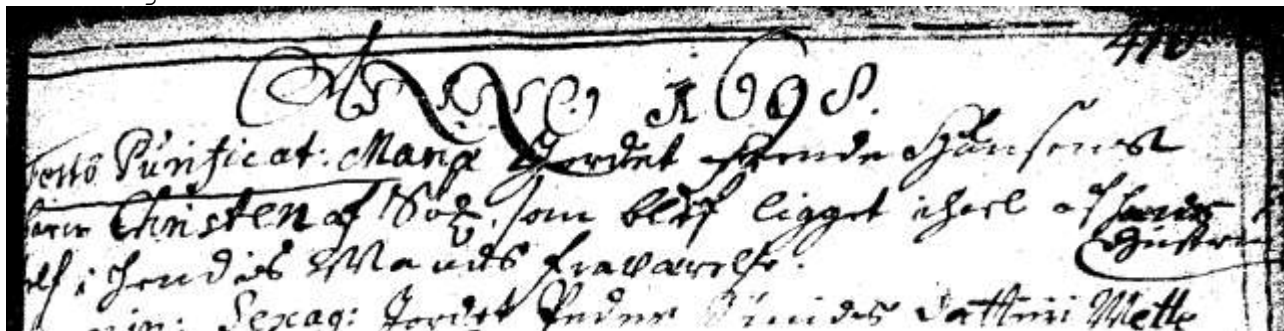 ANNO 1698.
Festo Purificat: Mariæ Jordet Hansens
barn Christen af Söe, som blef ligget ihiel af hendes
Hustru
self i hendis Mands fraværelse.
Sexag: Jordet Peder datter Mette